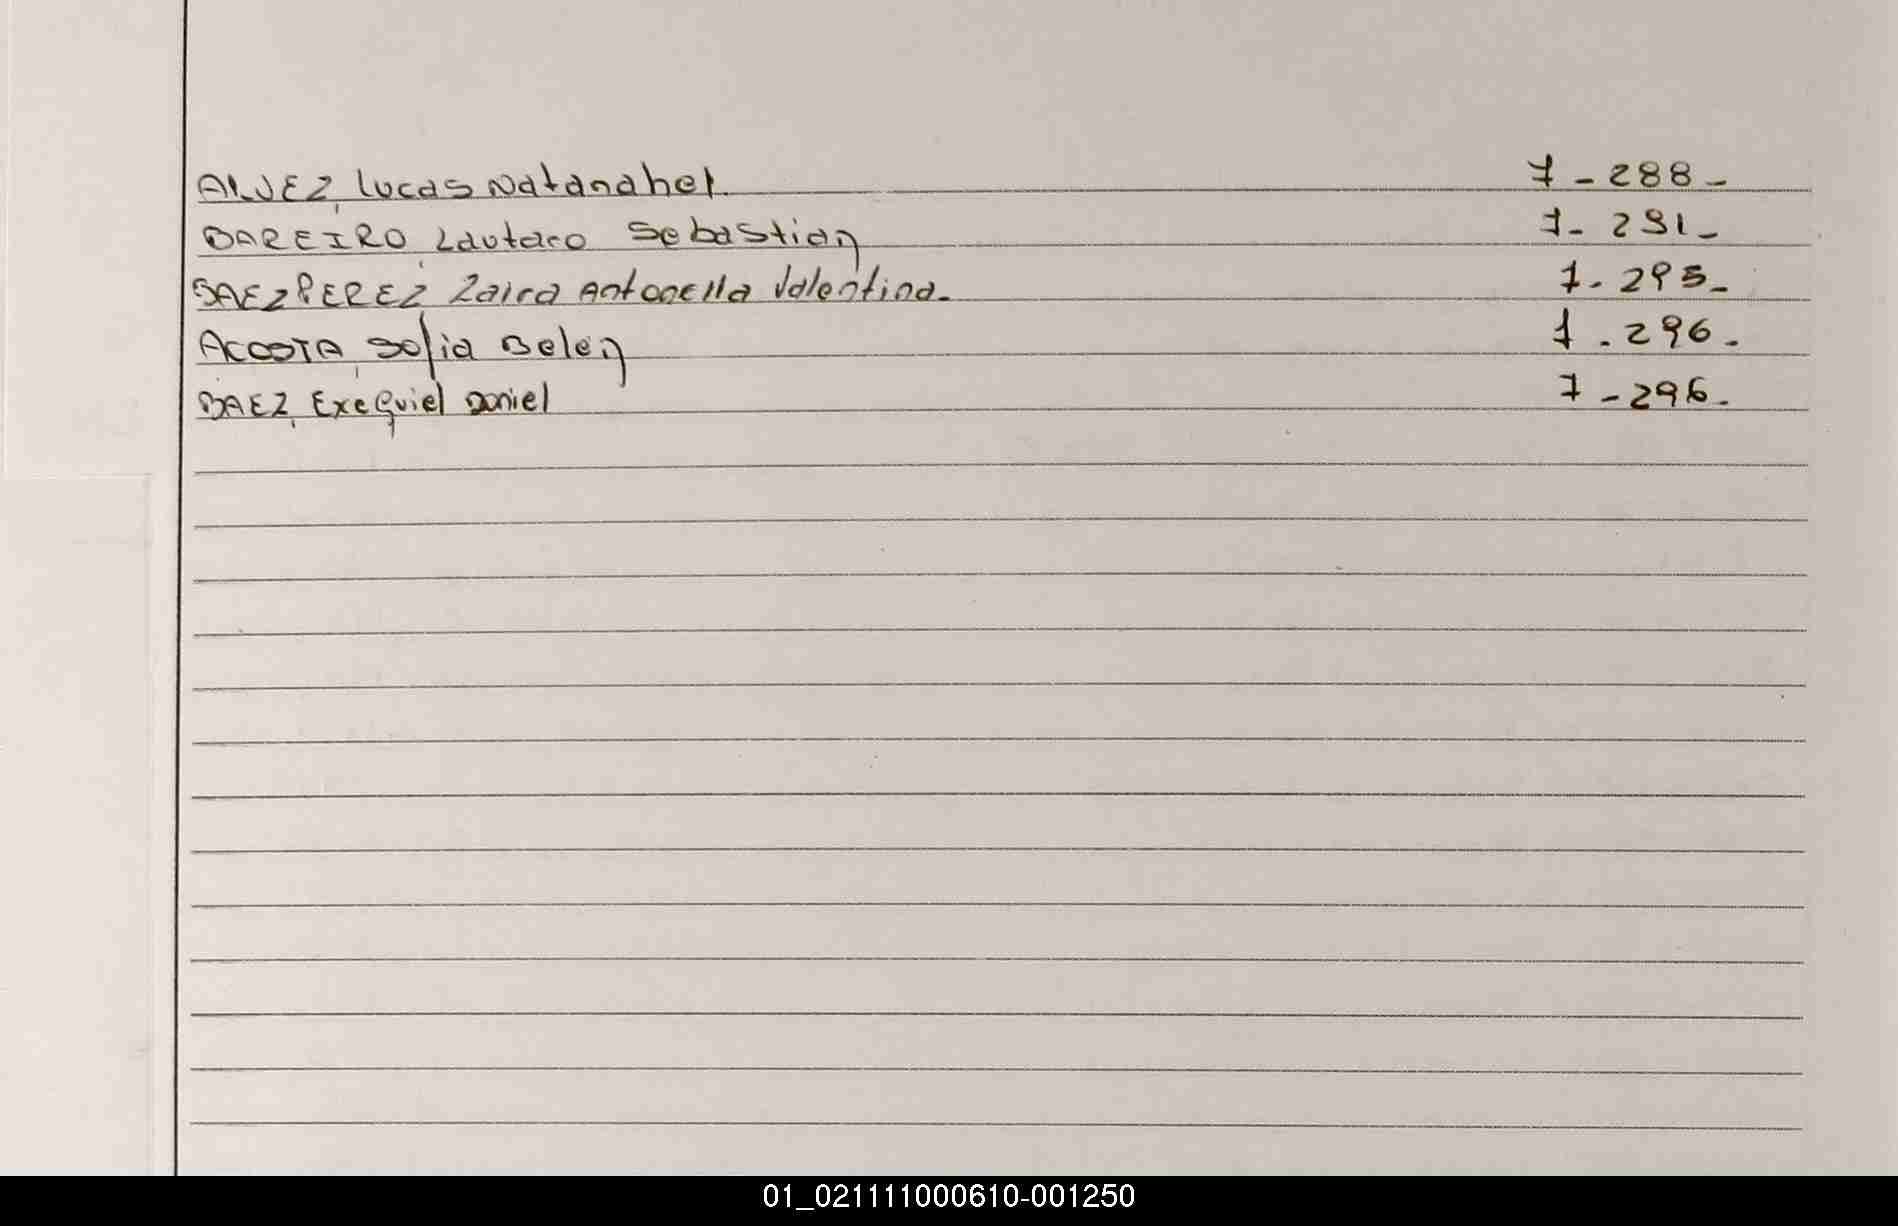 ALVEZ, Lucas Natanahel. 7 - 288 -
BAREIRO, Lautaro Sebastian 7 - 291 -
BAEZ PEREZ Zaira Antonella Valentina. 7 - 295 -
ACOSTA, Sofia Belen 7 . 296 .
BAEZ, Exequiel Daniel 7 - 296 .
01_021111000610-001250